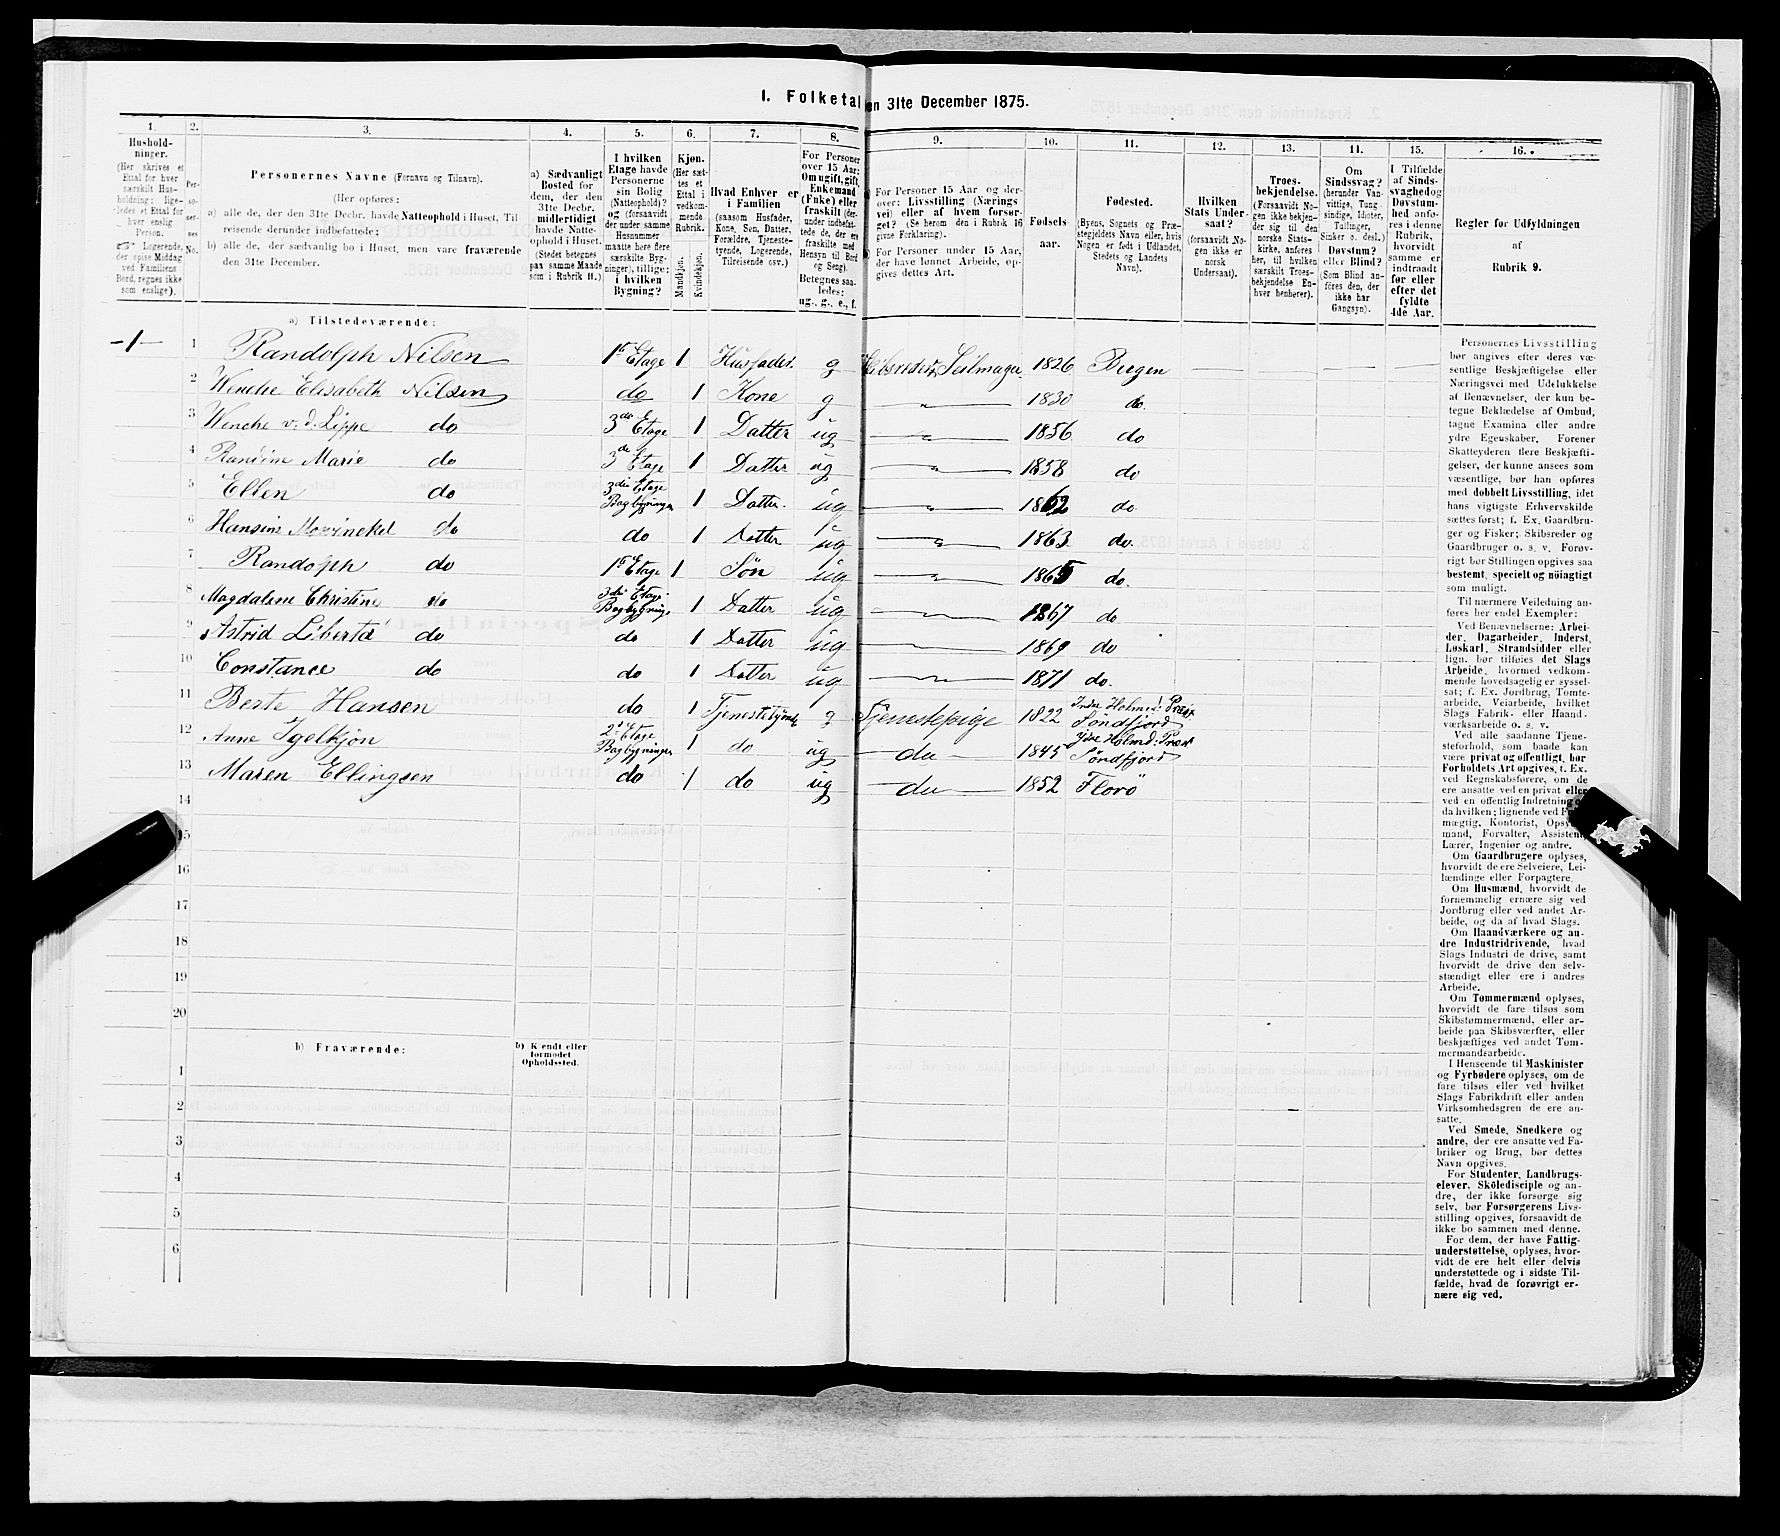 1. Folketal den 31te December 1875.
1. 2. 3. 4. 5. 6. 7. 8. 9. 10. 11. 12. 13. 14. 15. 16.
Hushold-
ninger.
(Her skrives et
Ettal for hver
særskilt Hus-
holdning; lige-
ledes et Ettal for
hver enslig
Person.
☞ Logerende,
der spise Middag
ved Familiens
Bord, regnes ikke
som enslige).
Per-
so-
ner-
nes
No.
Personernes Navne (Fornavn og Tilnavn).
(Her opføres:
a) alle de, der den 31te Decbr. havde Natteophold i Huset, Til-
reisende derunder indbefattede;
b) alle de, der sædvanlig bo i Huset, men vare fraværende
den 31te December.
a) Sædvanligt
Bosted for
dem, der den
31te Decbr.
midlertidigt
havde Natte-
ophold i Huset.
(Stedet betegnes
paa samme Maade
som i Rubrik 11.)
I hvilken
Etage havde
Personerne
sin Bolig
(Natteophold)?
og (forsaavidt
der under samme
Husnummer
maatte høre flere
særskilte Byg-
ninger), tillige:
i hvilken
Bygning?
Kjøn.
(Her sæt-
tes et
Ettal i
vedkom-
mende
Rubrik.
Mandkjøn.
Kvindekjøn.
Hvad Enhver er
i Familien
(saasom Husfader,
Kone, Søn, Datter,
Forældre, Tjeneste-
tyende, Logerende,
Tilreisende osv.)
For Personer
over 15 Aar:
Om ugift, gift,
Enkemand
(Enke) eller
fraskilt (der-
under indbefat-
tede de, der ere
fraskilte med
Hensyn til Bord
og Seng).
Betegnes saa-
ledes:
ug., g., e., f.
For Personer 15 Aar og der-
over: Livsstilling (Nærings
vei) eller af hvem forsør-
get? (Se herom den i Rubrik 16
givne Forklaring).
For Personer under 15 Aar,
der have lønnet Arbeide, op-
gives dettes Art.
Fødsels-
aar.
Fødested.
(Byens, Sognets og Præ-
stegjeldets Navn eller, hvis
Nogen er født i Udlandet,
Stedets og Landets
Navn).
Hvilken
Stats Under-
saat?
(forsaavidt No-
gen ikke er
norsk
Undersaat).
Troes-
bekjendelse.
(Forsaavidt No-
gen ikke bekjen-
der sig til den
norske Stats-
kirke, anføres
her, til hvilken
særskilt Troes-
bekjendelse En-
hver henhører).
Om
Sindssvag?
(herunder Van-
vittige, Tung-
sindige, Idioter,
Tullinger,
Sinker o. desl.)
Døvstum?
eller Blind?
(Som Blind an-
føres den, der
ikke har
Gangsyn).
I Tilfælde
af Sinds-
svaghed og
Døvstum-
hed anfø-
res i denne
Rubrik,
hvorvidt
samme er
indtraadt
før eller
efter det
fyldte
4de Aar.
Regler for Udfyldningen
af
Rubrik 9.
a) Tilstedeværende:
-1- 1 Randolph Nilsen 1ste Etage 1 Husfader g Skibsreder, Seilmager 1826 Bergen
2 Wenche Elisabeth Nilsen do 1 Kone g " 1830 do.
3 Wenche v. d. Lippe do 3die Etage 1 Datter ug " 1856 do
4 Randine Marie do 3die Etage 1 Datter ug " 1858 do
5 Ellen do 3die Etage Bagbygningen 1 Datter. ug " 1862 do
6 Hansine Mowinckel do do 1 Datter ug " 1863 do.
7 Randolph do 1ste Etage 1 Søn ug " 1865 do.
8 Magdalene Christine do 3die Etage Bagbygning 1 Datter ug " 1867 do
9 Astrid Liberta do do 1 Datter ug " 1869 do
10 Constance do do 1 Datter ug " 1871 do.
11 Berte Hansen do 1 Tjenestetyende g Tjenestepige 1822 Indre Holmed. Præst Søndfjord
12 Anne Igelkjøn 2d Etage Bagbygningen 1 do ug do 1845 Ydre Holmd. Præst Søndfjord
13 Maren Ellingsen do 1 do ug do 1852 Florö
14
15
16
17
18
19
20
b) Fraværende:
b) Kjendt eller
formodet
Opholdssted.
1
2
3
4
5
6
Personernes Livsstilling
bør angives efter deres væ-
sentlige Beskjæftigelse eller
Næringsvei med Udelukkelse
af Benævnelser, der kun be-
tegne Beklædelse af Ombud,
tagne Examina eller andre
ydre Egenskaber. Forener
Skatteyderen flere Beskjæfti-
gelser, der kunne ansees som
væsentlige, bør han opføres
med dobbelt Livsstilling, idet
hans vigtigste Erhvervskilde
sættes først; f. Ex. Gaardbru-
ger og Fisker; Skibsreder og
Gaardbruger o. s. v. Forøv-
rigt bør Stillingen opgives saa
bestemt, specielt og nöiagtigt
som muligt.
Til nærmere Veiledning an-
føres her endel Exempler:
Ved Benævnelserne: Arbei-
der, Dagarbeider, Inderst,
Løskarl, Strandsidder eller
lign. bør tilføies det Slags
Arbeide, hvormed vedkom-
mende hovedsagelig er syssel-
sat; f. Ex. Jordbrug, Tomte-
arbeide, Veiarbeide, hvilket
Slags Fabrik- eller Haand-
værksarbeide o. s. v.
Ved alle saadanne Tjene-
steforhold, som baade kan
være privat og offentligt, bør
Forholdets Art opgives, t. Ex.
ved Regnskabsførere, om de
ere ansatte ved en privat eller
ved en offentlig Indretning og
da hvilken; lignende ved Fuld-
mægtig, Kontorist, Opsyns-
mand, Forvalter, Assistent,
Lærer, Ingeniør og andre.
Om Gaardbrugere oplyses,
hvorvidt de ere Selveiere, Lei-
lændinge eller Forpagtere.
Om Husmænd, hvorvidt de
fornemmelig ernære sig ved
Jordbrug eller ved andet Ar-
beide, og da af hvad Slags.
Om Haandværkere og an-
dre Industridrivende, hvad
Slags Industri de drive, samt
hvorvidt de drive den selv-
stændigt eller ere i andres
Arbeide.
Om Tømmermænd oplyses,
hvorvidt de fare tilsøs som
Skibstømmermænd, eller ar-
beide paa Skibsværfter, eller
beskjæftiges ved andet Tøm-
mermandsarbeide.
I Henseende til Maskinister
og Fyrbødere oplyses, om de
fare tilsøs eller ved hvilket
Slags Fabrikdrift eller anden
Virksomhedsgren de ere an-
satte.
Ved Smede, Snedkere og
andre, der ere ansatte ved Fa-
briker og Brug, bør dettes
Navn opgives.
For Studenter, Landbrugs-
elever, Skoledisciple og an-
dre, der ikke forsørge sig
selv, bør Forsørgerens Livs-
stilling opgives, forsaavidt de
ikke bo sammen med denne.
For dem, der have Fattig-
understøttelse, oplyses, hvor-
vidt de ere helt eller delvis
understøttede og i sidste Til-
fælde, hvad de forøvrigt er-
nære sig ved.